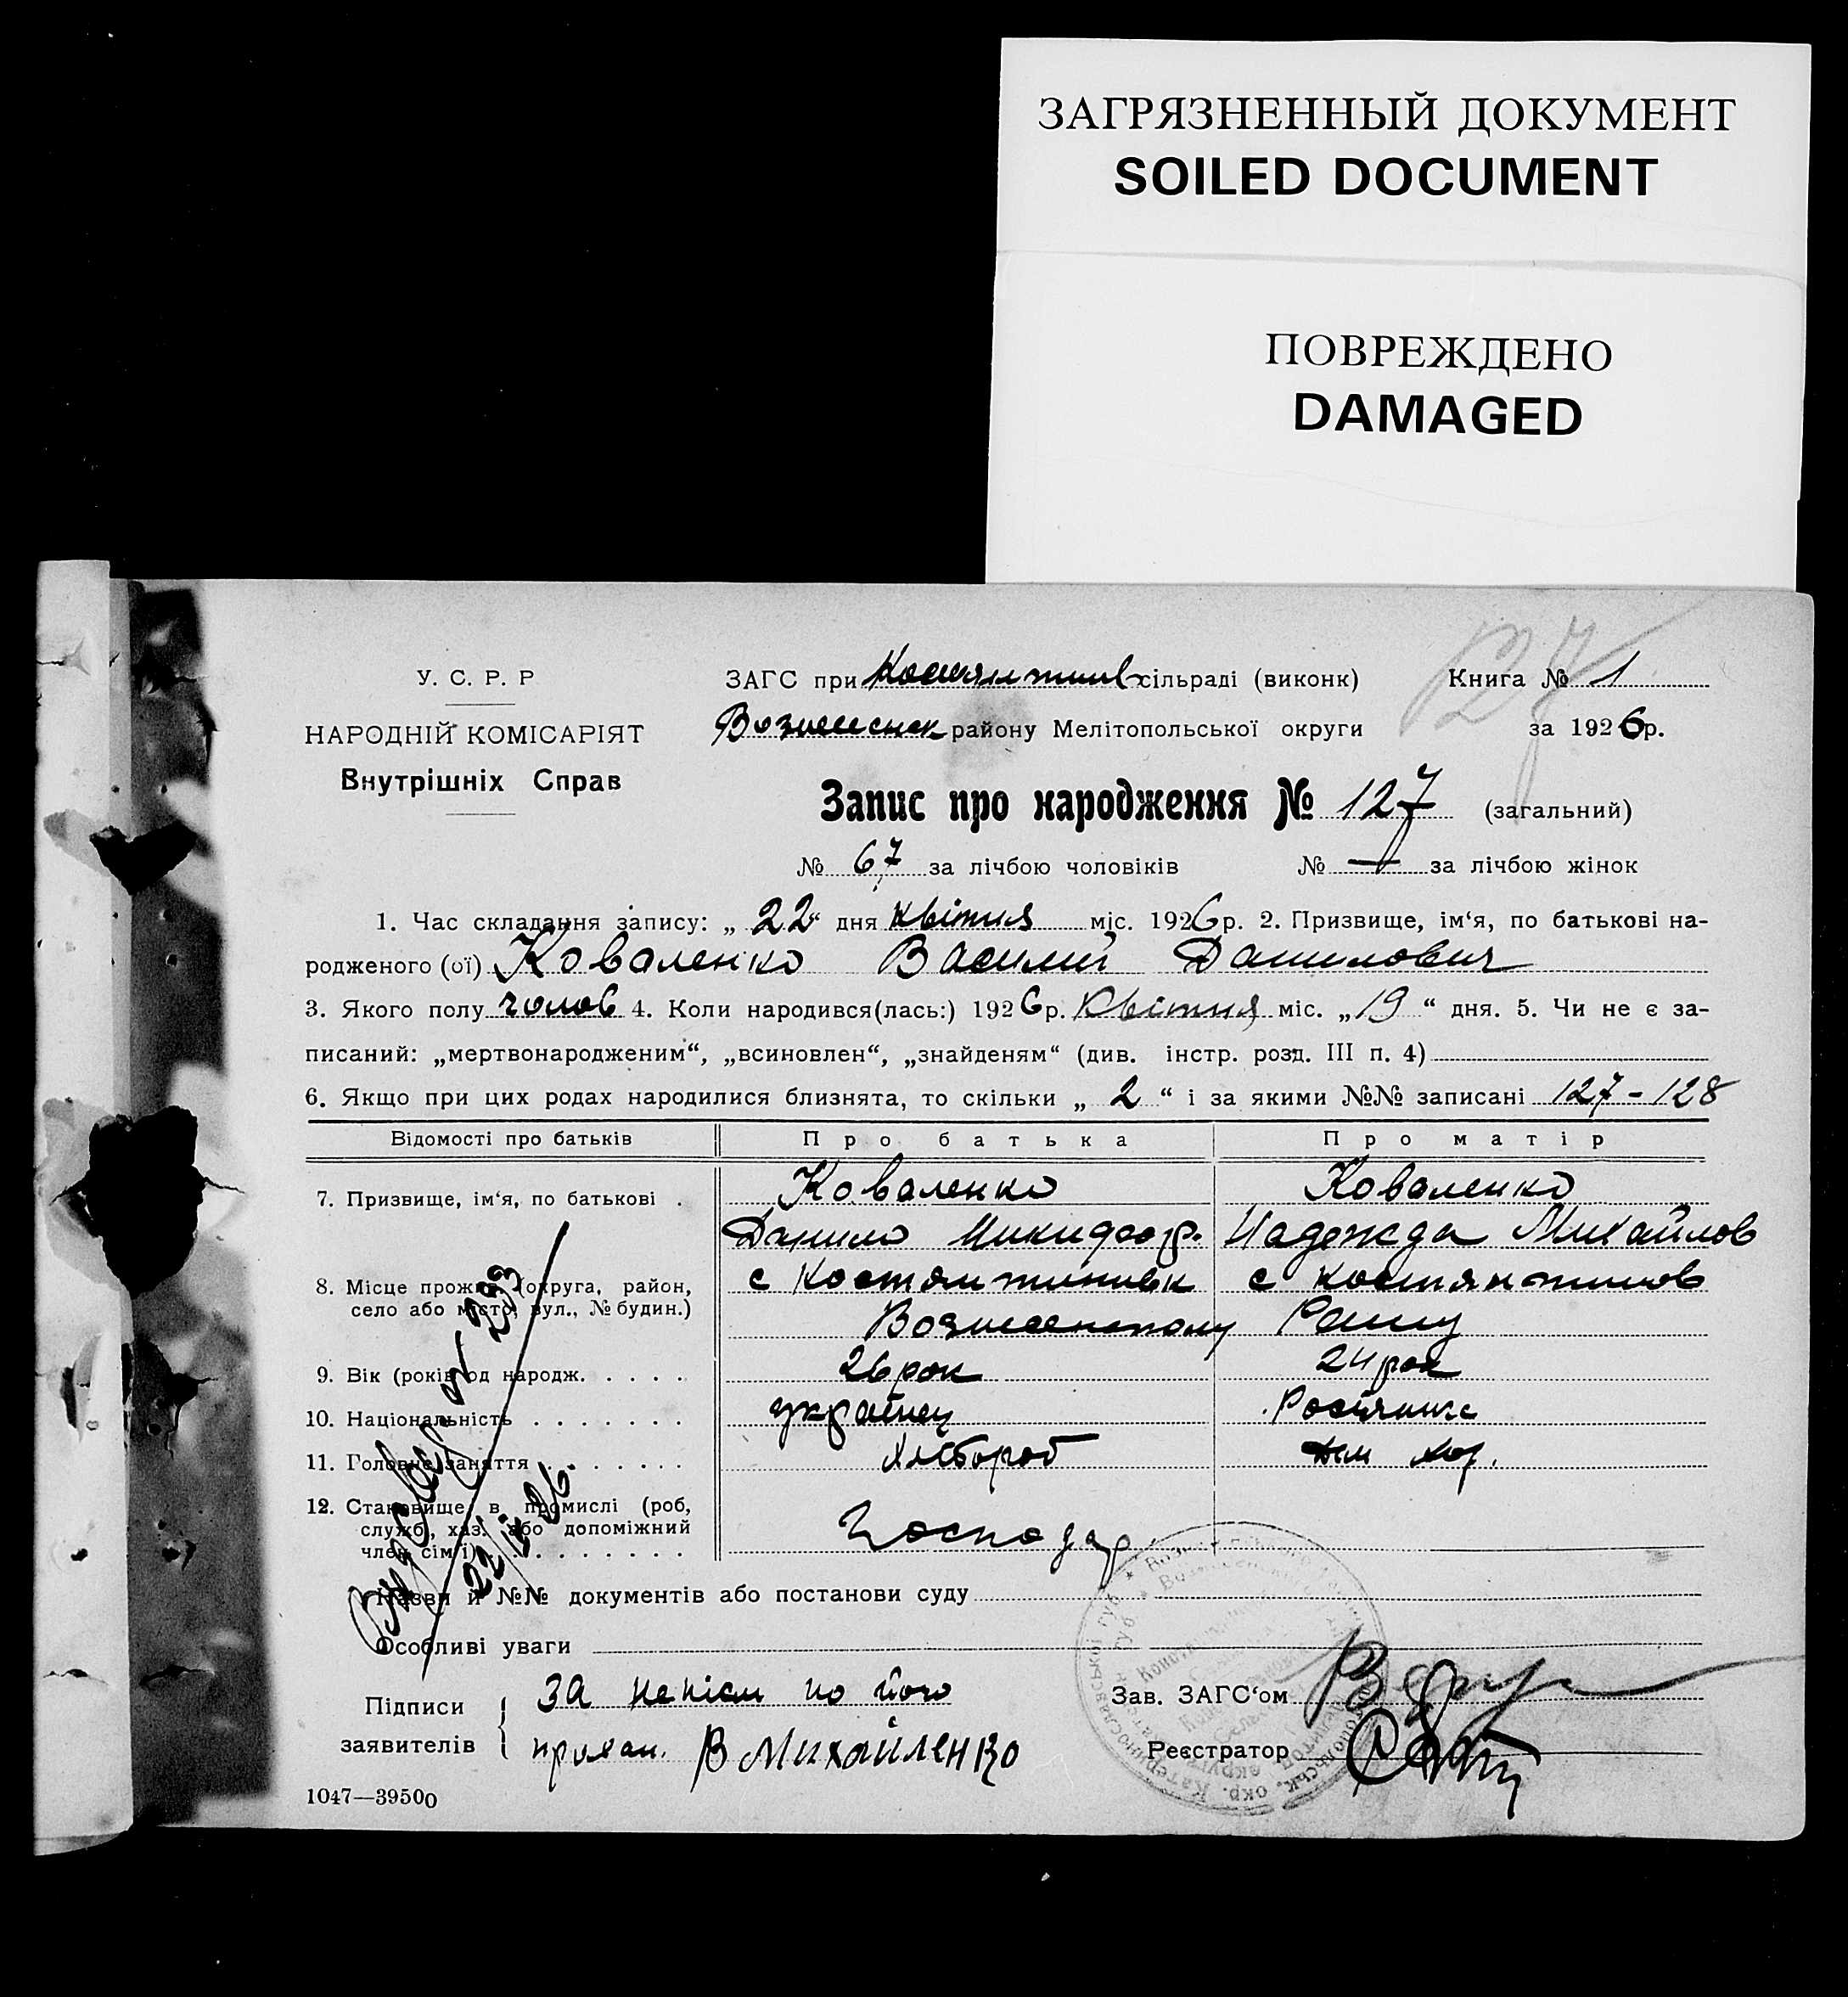 ЗАГРЯЗНЕННЫЙ ДОКУМЕНТ
SOILED DOCUMENT
ПОВРЕЖДЕНО
DAMAGED
127
У. С. Р. Р
НАРОДНІЙ КОМІСАРІЯТ
Внутрішніх Справ
ЗАГС при Костянтинів сільраді (виконк) Книга № 1
Вознесенск району Мелітопольської округи за 1926 р.
Запис про народження № 127 (загальний)
№ 67 за лічбою чоловіків № — за лічбою жінок
1. Час складання запису: „ 22 “ дня квітня міс. 1926 р. 2. Призвище, ім‘я, по батькові на-
родженого (ої) Коваленко Василий Данилович
3. Якого полу чолов 4. Коли народився(лась:) 1926 р. Квітня міс. „ 19 “ дня. 5. Чи не є за-
писаний: „мертвонародженим“, „всиновлен“, „знайденям“ (див. інстр. розд. III п. 4)
6. Якщо при цих родах народилися близнята, то скільки „ 2 “ і за якими №№ записані 127-128
Відомості про батьків Про батька Про матір
7. Призвище, ім‘я, по батькові . Коваленко Коваленко
Данило Никифор. Надежда Михайлов
8. Місце прожив. (округа, район, с Костянтинівк с Костянтинов
село або місто, вул., № будин.)
Вознесенському Раину
9. Вік (років од народж. . . . . 26 рок 24 рок
10. Національність . . . . . . . українец Росіянка
11. Головне заняття . . . . . . . Хлібороб
12. Становище в промислі (роб,
служб, хаз. або допоміжний
член сім‘ї) . . . . . . . . . Господар
№ 293
22/IV 26
Назви й №№ документів або постанови суду
Особливі уваги
Підписи
заявителів
За непісм по його
прохан. В Михайленко
Зав. ЗАГС‘ом
Реєстратор
1047—39500